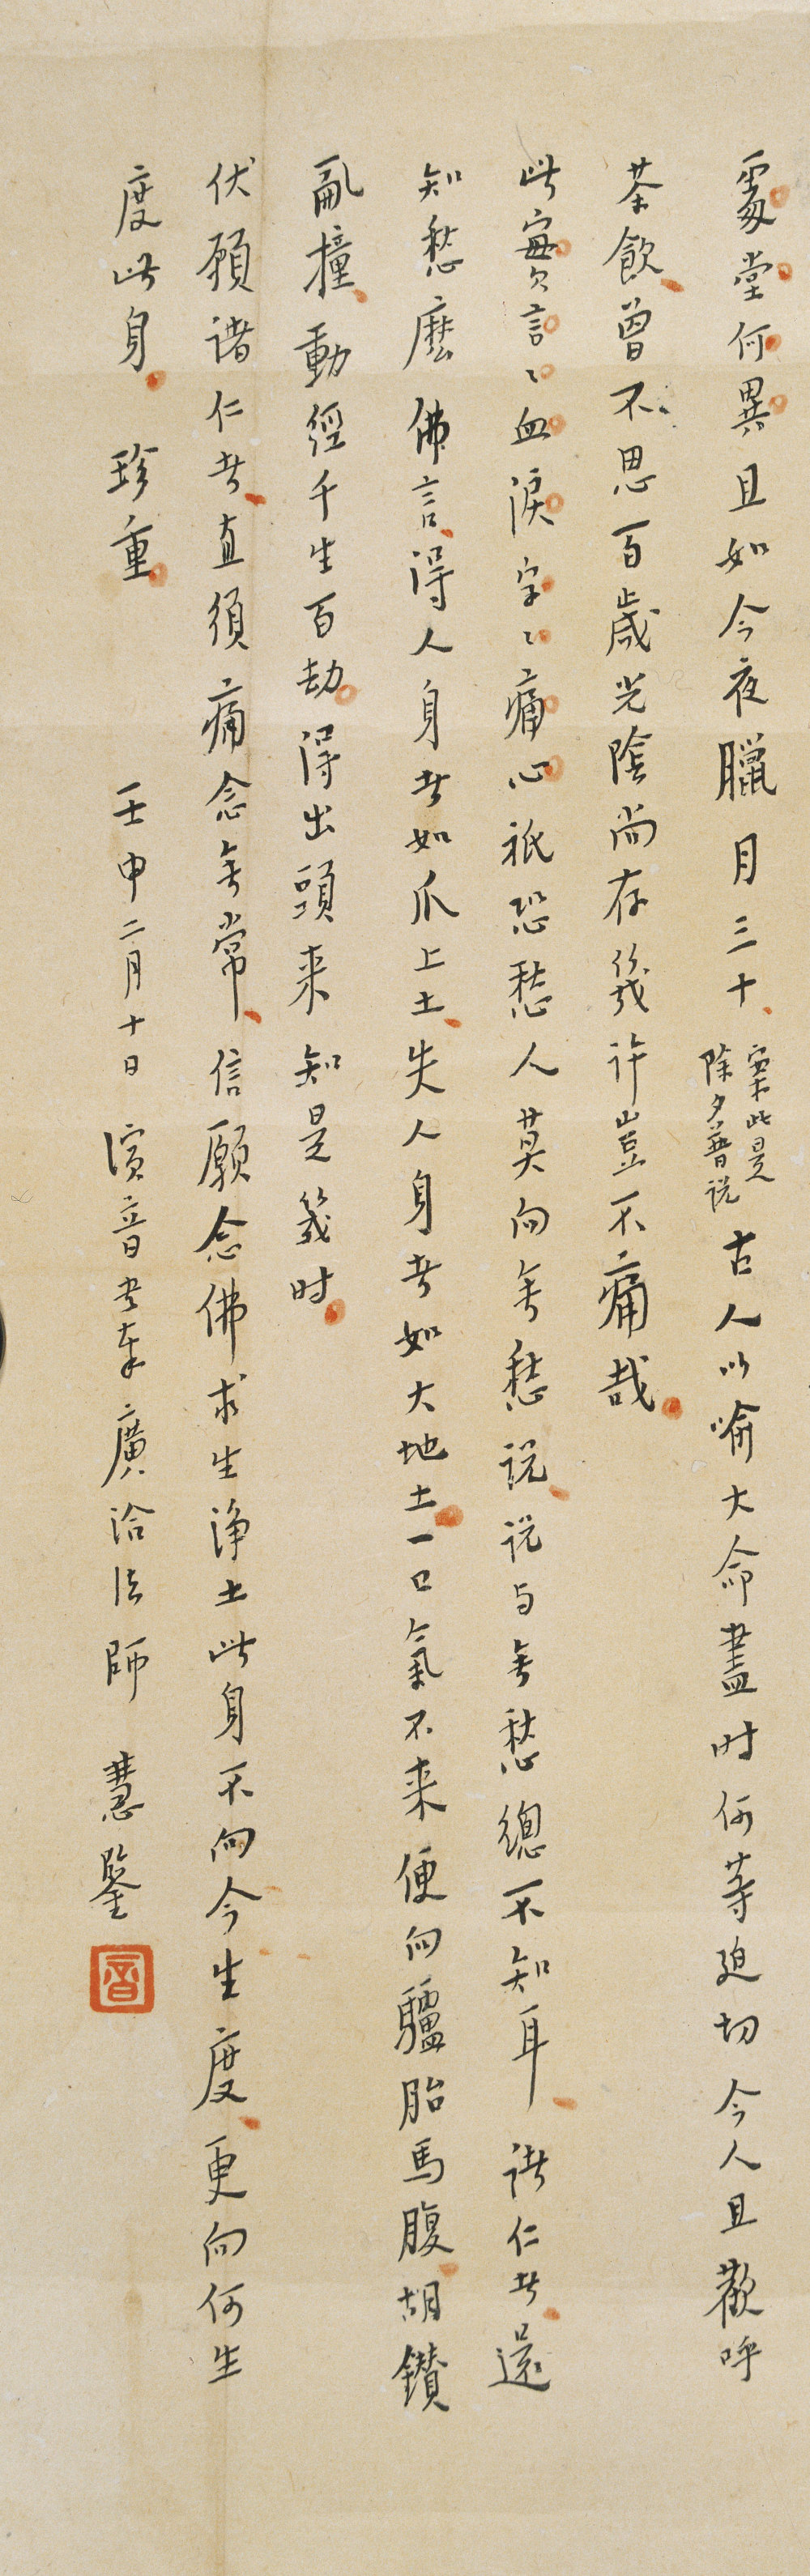 處堂何異且如今夜臘月三十
案此是
除夕普説
古人以喻大命盡时何等迫切今人且歡呼
茶飲曾不思百歲光陰尚存幾许豈不痛哉
此實言々血淚字々痛心祇恐愁人莫向無愁説説与無愁總不知耳諸仁者還
知愁麽佛言得人身者如爪上土失人身者如大地土一口氣不来便向驢胎馬腹胡鑽
亂撞動經千生百劫得出頭来知是幾时
伏願諸仁者直須痛念無常信願念佛求生淨土此身不向今生度更向何生
度此身 珍重 壬申二月十日 演音书奉廣洽法師 慧鑒
音